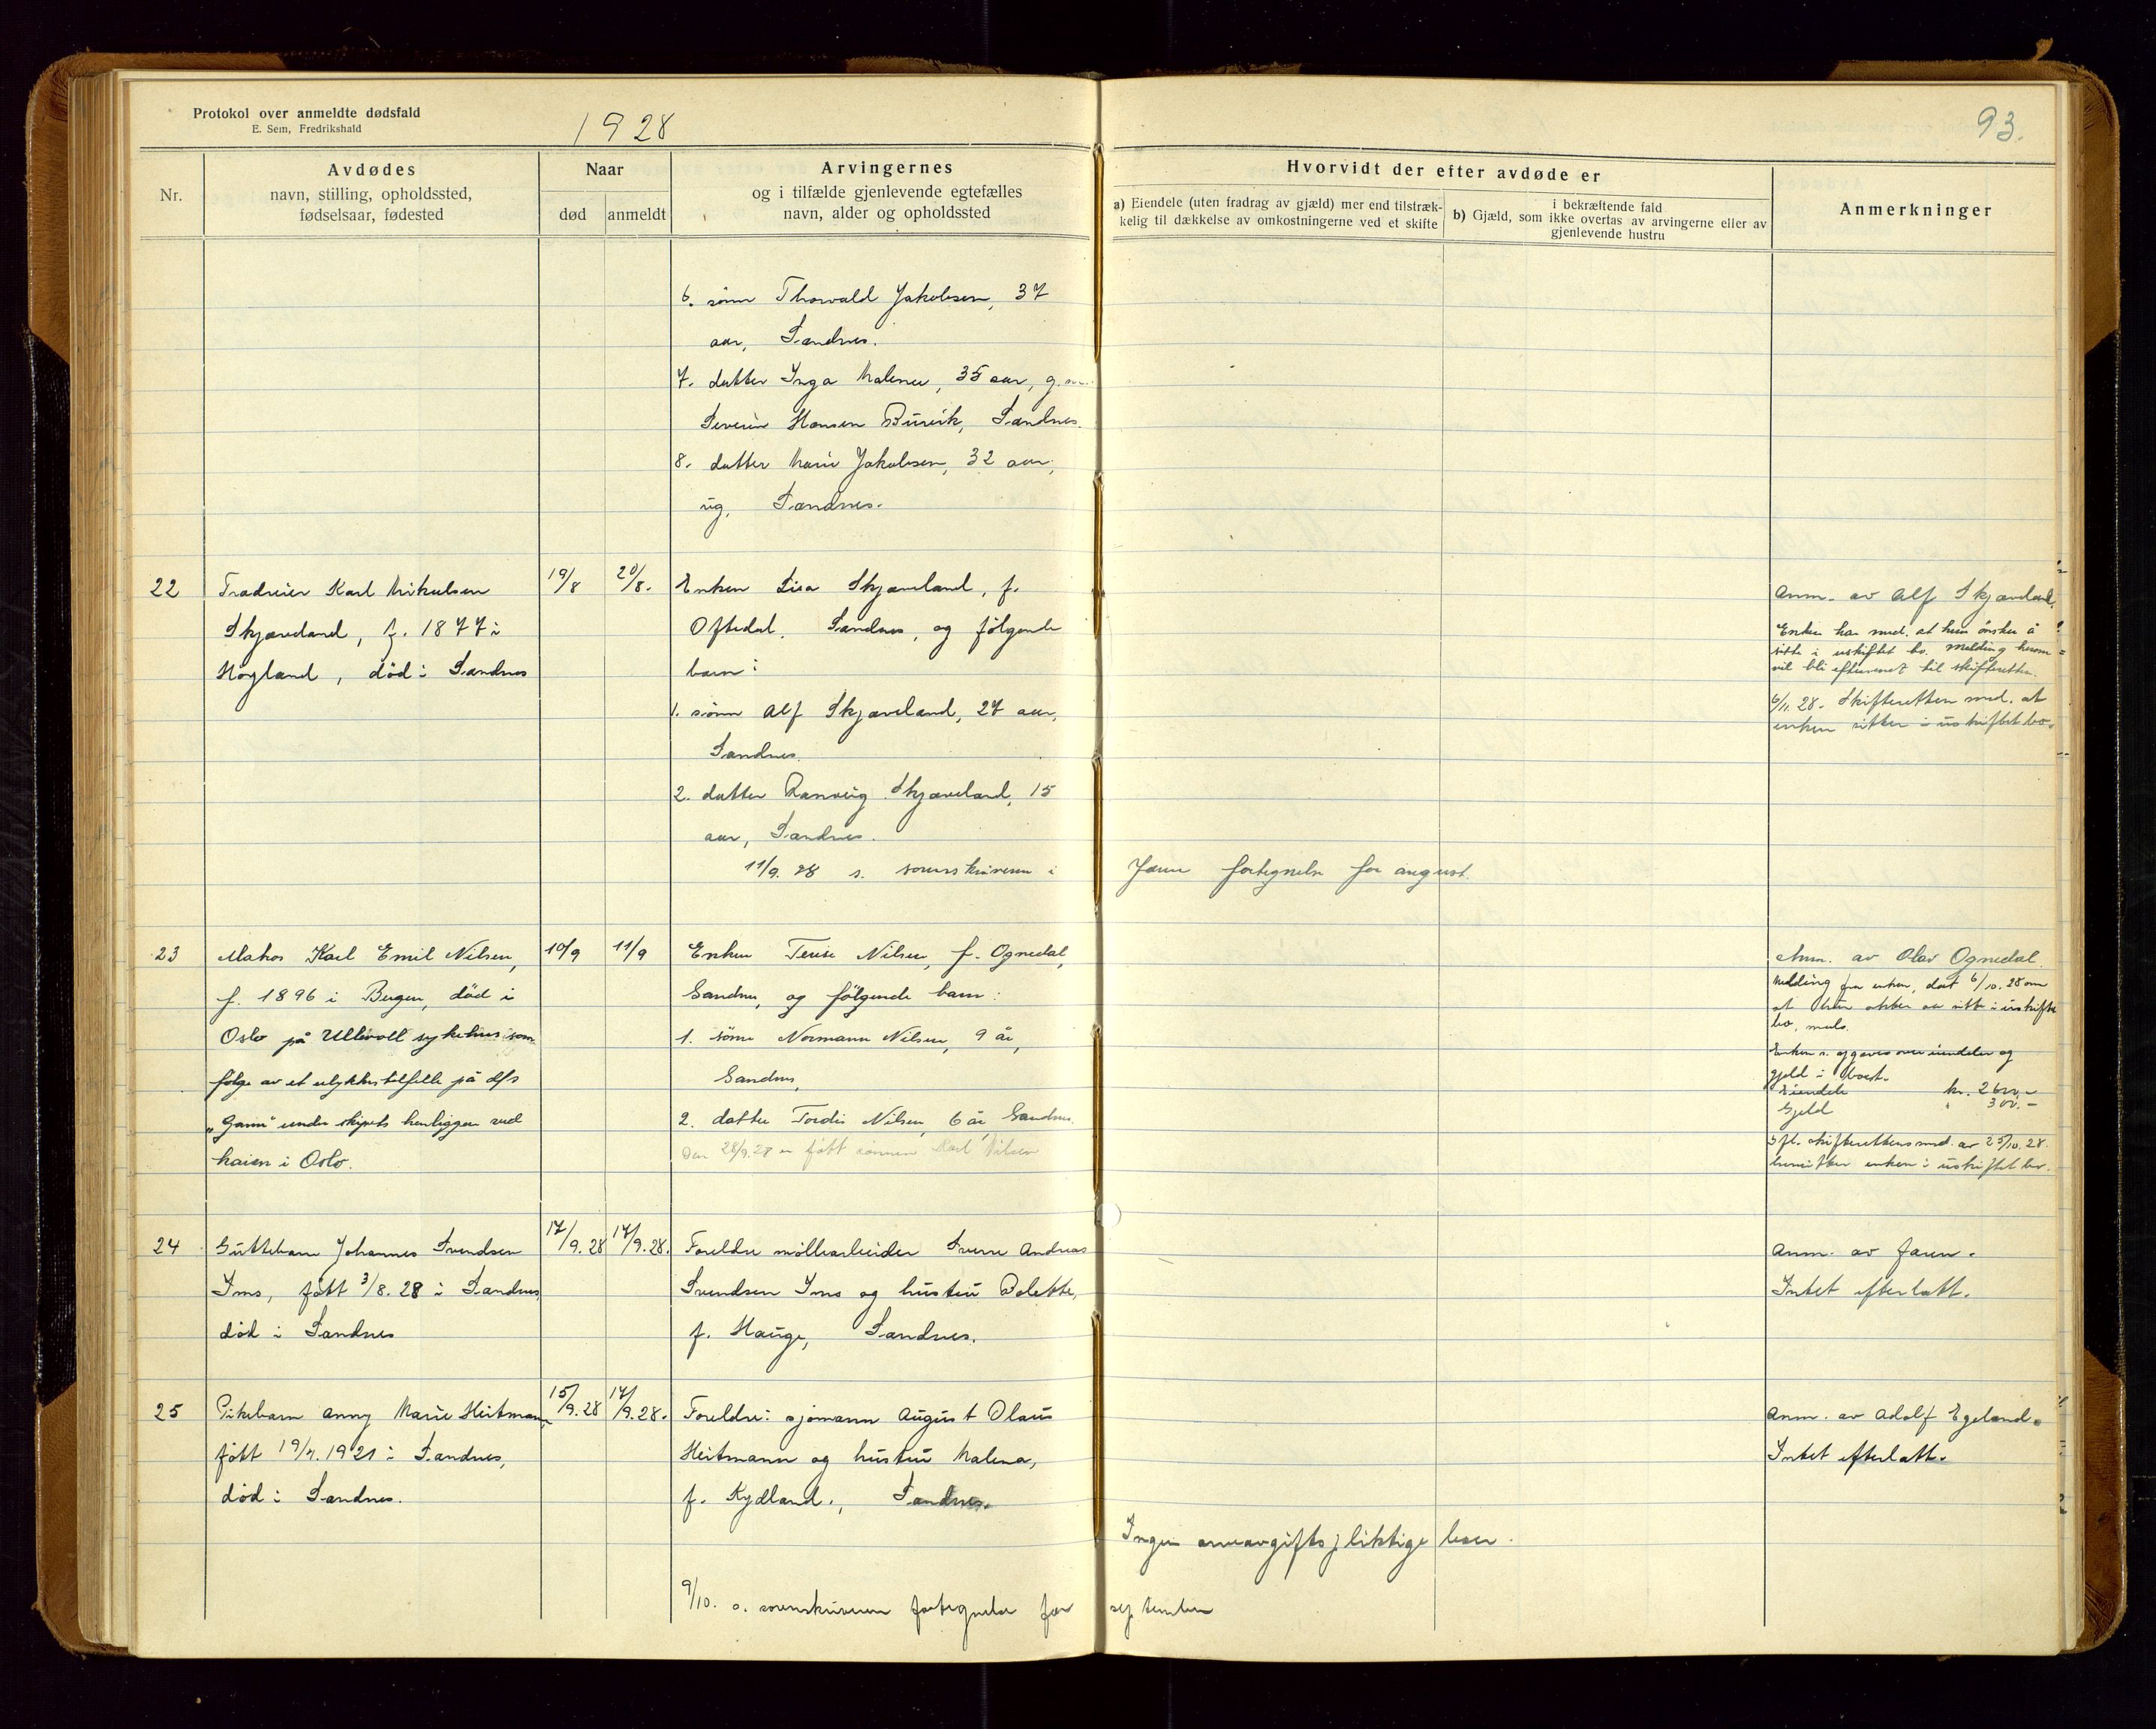 Protokol over anmeldte dødsfald
E. Sem, Fredrikshald
1928
93.
Nr.
Avdødes
navn, stilling, opholdssted,
fødselsaar, fødested
Naar
død
anmeldt
Arvingernes
og i tilfælde gjenlevende egtefælles
navn, alder og opholdssted
Hvorvidt der efter avdøde er
a) Eiendele (uten fradrag av gjæld) mer end tilstræk-
kelig til dækkelse av omkostningerne ved et skifte
i bekræftende fald
b) Gjæld, som ikke overtas av arvingerne eller av
gjenlevende hustru
Anmerkninger
6. sønn Thorvald Jakobsen, 37
aar, Sandnes.
7. datter Inga Malene, 35 aar, g.m.
Severin Hansen Buvik, Sandnes.
8. datter Marie Jakobsen, 32 aar,
ug, Sandnes.
22
Karl Mikalsen
Skjæveland, f. 1877 i
Høgland, død i Sandnes
19/8
20/8.
Enken Lisa Skjæveland, f.
Oftedal. Sandnes, og følgende
barn:
1. sønn Alf Skjæveland, 27 aar,
Sandnes.
2. datter Ranveig Skjæveland, 15
aar, Sandnes.
11/9. 28 s. sorenskriveren i Jæren fortegnelse for august.
Anm. av Alf Skjæveland.
Enken har med. at hun ønsker å
sitte i uskiftet bo. Melding herom
vil bli eftersendt til skifteretten.
6/11. 28. Skifteretten med. at
enken sitter i uskiftet bo.
23
Matros Karl Emil Nilsen,
f. 1896 i Bergen, død i
Oslo på Ullevoll sykehus som
følge av et ulykkestilfelle på d/s
"Gann" under skipets henliggen ved
kaien i Oslo.
10/9
11/9
Enken Terise Nilsen, f. Ognedal,
Sandnes, og følgende barn:
1. sønn Normann Nilsen, 9 år,
Sandnes,
2. datter Tordis Nilsen, 6 år, Sandnes.
Den 28/9.28 er født sønnen Karl Nilsen
Anm. av Olav Ognedal.
Melding fra enken, dat 6/10. 28 om
at hun akter aa sitte i uskiftet
bo,
Enken s. opgave over eiendeler og
gjeld i boet.
Eiendele kr. 2600,-
Gjeld " 300,-
Ifl. skifterettens med. av 25/10. 28.
hensitter enken i uskiftet bo.
24
Guttebarn Johannes Svendsen
Ims, født 3/8. 28 i Sandnes,
død i Sandnes
17/9. 28
17/9. 28.
Foreldre møllearbeider Sverre Andreas
Svendsen Ims og hustru Bolette,
f. Hauge, Sandnes.
Anm. av faren.
Intet efterlatt.
25
Pikebarn Anny Marie Heitmann,
født 19/4. 1921 i Sandnes,
død i Sandnes.
15/9. 28
17/9. 28.
Foreldre: sjømann August Olaus
Heitmann og hustru Malena,
f. Rydland., Sandnes.
Anm. av Adolf Egeland.
Intet efterlatt.
Ingen arveavgiftspliktige boer.
9/10. s. sorenskriveren fortegnelse for september